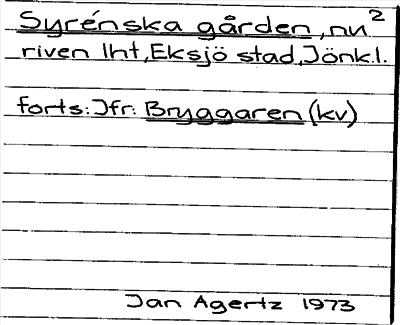 Syrénska gården, nu 2
riven lht, Eksjö stad, Jönk.l.
forts: Jfr: Bryggaren (kv)
Jan Agertz 1973